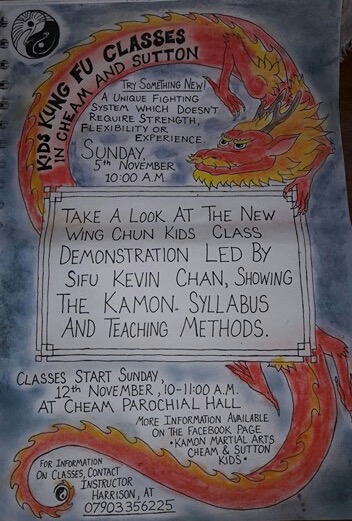 KIDS KUNG FU CLASSES
IN CHEAM AND SUTTON
TRY SOMETHING NEW!
A UNIQUE FIGHTING
SYSTEM WHICH DOESN'T
REQUIRE STRENGTH,
FLEXIBILITY OR
EXPERIENCE.
SUNDAY,
5th NOVEMBER
10:00 A.M.
TAKE A LOOK AT THE NEW
WING CHUN KIDS CLASS
DEMONSTRATION LED BY
SIFU KEVIN CHAN, SHOWING
THE KAMON SYLLABUS
AND TEACHING METHODS.
CLASSES START SUNDAY,
12th NOVEMBER, 10-11:00 A.M.
AT CHEAM PAROCHIAL HALL
MORE INFORMATION AVAILABLE
ON THE FACEBOOK PAGE
•KAMON MARTIAL ARTS
CHEAM & SUTTON
KIDS•
FOR INFORMATION
ON CLASSES, CONTACT
INSTRUCTOR
HARRISON, AT
07903356225